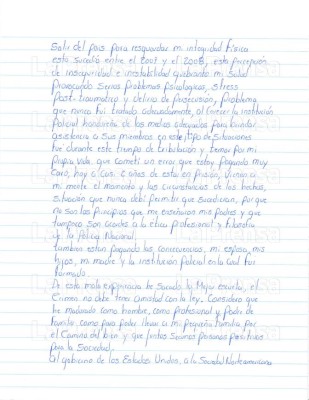 Salir del país para resguardar mi integridad física
esto sucedió entre el 2007 y el 2008, esta percepción
de inseguridad e inestabilidad quebrantó mi Salud
Provocando serios problemas psicologicos, stress
Post-traumatico y delirio de Persecusión, Problema
que nunca fui tratado adecuadamente, al carecer la institución
Policial hondureña de los medios adecuados para brindar
asistencia a Sus miembros en este tipo de Situaciones
fue durante este tiempo de tribulación y temor por mi
Propia Vida, que cometí un error que estoy pagando muy
Caro, hoy a casi 6 años de estar en Prisión, Vienen a
mi mente el momento y las circunstancias de los hechos,
Situación que nunca debí permitir que sucedieran, por que
no son los principios que me enseñaron mis padres y que
tampoco son acordes a la ética Profesional y Filosofía
de la Policia Nacional.
tambien están pagando las consecuencias, mi esposa, mis
hijos, mi madre y la institución Policial en la cual fui
formado.
De esta mala experiencia he Sacado la Mejor escuela, el
Crimen no debe tener amistad con la ley. Considero que
he madurado como hombre, como profesional y Padre de
familia como para poder llevar a mi pequeña familia por
el Camino del bien y que juntos Seamos personas positivas
para la Sociedad.
Al gobierno de los Estados Unidos, a la Sociedad Norteamericana